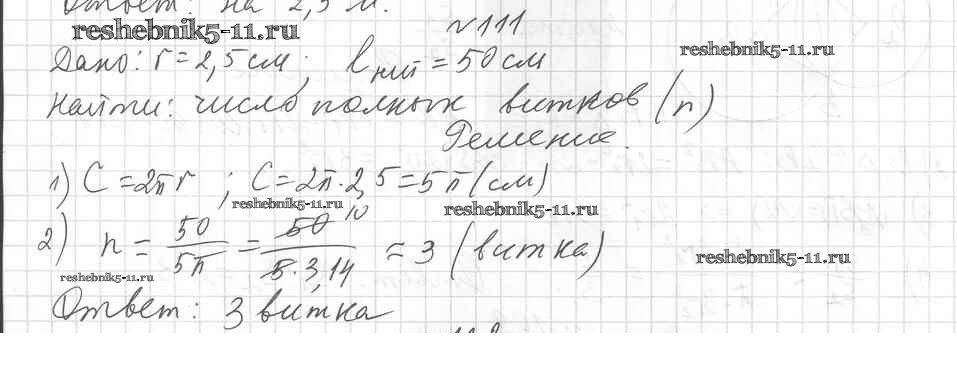 Ответ: на 2,5 м.
reshebnik5-11.ru
№111
reshebnik5-11.ru
Дано: r = 2,5 см; l нит = 50 см
Найти: число полных витков (n)
Решение.
1) C = 2π r ; C = 2π · 2,5 = 5π (см)
reshebnik5-11.ru
reshebnik5-11.ru
2) n = 50/5π = 50 10/5 · 3,14 = 3 (витка)
reshebnik5-11.ru
reshebnik5-11.ru
Ответ: 3 витка